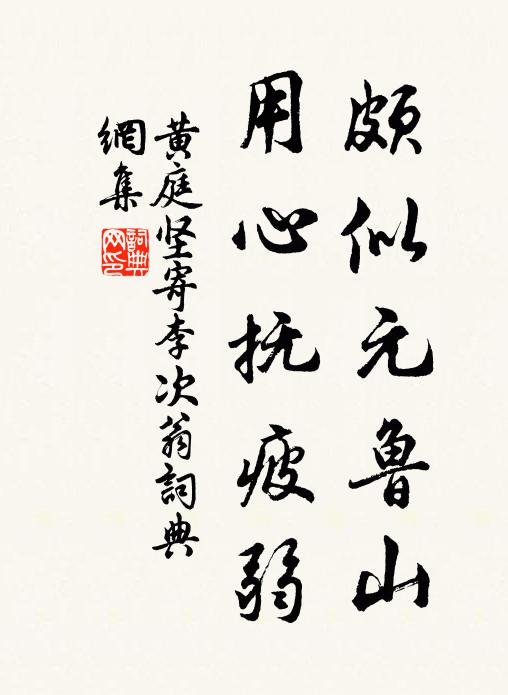 颇似元鲁山
用心抚疲弱
黄庭坚寄李次翁詞典
網集
詞典
网印